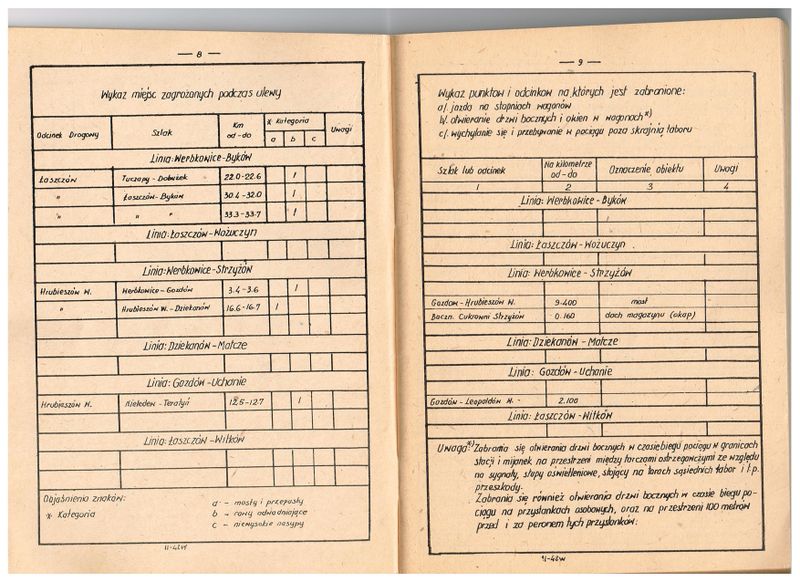 — 8 —
Wykaz miejsc zagrożonych podczas ulewy
Odcinek Drogowy | Szlak | Km od-do | * Kategoria a b c | Uwagi
Linia: Werbkowice-Byków
Łaszczów | Tuczapy-Dobużek | 22.0-22.6 | 1
" | Łaszczów-Byków | 30.4-32.0 | 1
" | " " | 33.3-33.7 | 1
Linia: Łaszczów-Wożuczyn
Linia: Werbkowice-Strzyżów
Hrubieszów W. | Werbkowice-Gozdów | 3.4-3.6 | 1
" | Hrubieszów W.-Dziekanów | 16.6-16.7 | 1
Linia: Dziekanów-Matcze
Linia: Gozdów-Uchanie
Hrubieszów W. | Nieledew-Teratyń | 12.5-12.7 | 1
Linia: Łaszczów-Witków
Objaśnienia znaków:
* Kategoria
a - mosty i przepusty
b - rowy odwadniające
c - niewysokie nasypy
11-42W
— 9 —
Wykaz punktów i odcinków na których jest zabronione:
a/ jazda na stopniach wagonów
b/ otwieranie drzwi bocznych i okien w wagonach*)
c/ wychylanie się i przebywanie w pociągu poza skrajnią taboru
Szlak lub odcinek | Na kilometrze od-do | Oznaczenie obiektu | Uwagi
1 | 2 | 3 | 4
Linia: Werbkowice-Byków
Linia: Łaszczów-Wożuczyn
Linia: Werbkowice-Strzyżów
Gozdów-Hrubieszów W. | 9.400 | most
Boczn. Cukrowni Strzyżów | 0.160 | dach magazynu (okap)
Linia: Dziekanów-Matcze
Linia: Gozdów-Uchanie
Gozdów-Leopoldów W. | 2.100
Linia: Łaszczów-Witków
Uwaga:*) Zabrania się otwierania drzwi bocznych w czasie biegu pociągu w granicach
stacji i mijanek na przestrzeni między tarczami ostrzegawczymi ze względu
na sygnały, słupy oświetleniowe, stojący na torach sąsiednich tabor i t.p.
przeszkody.
Zabrania się również otwierania drzwi bocznych w czasie biegu po-
ciągu na przystankach osobowych, oraz na przestrzeni 100 metrów
przed i za peronem tych przystanków.
11-42W